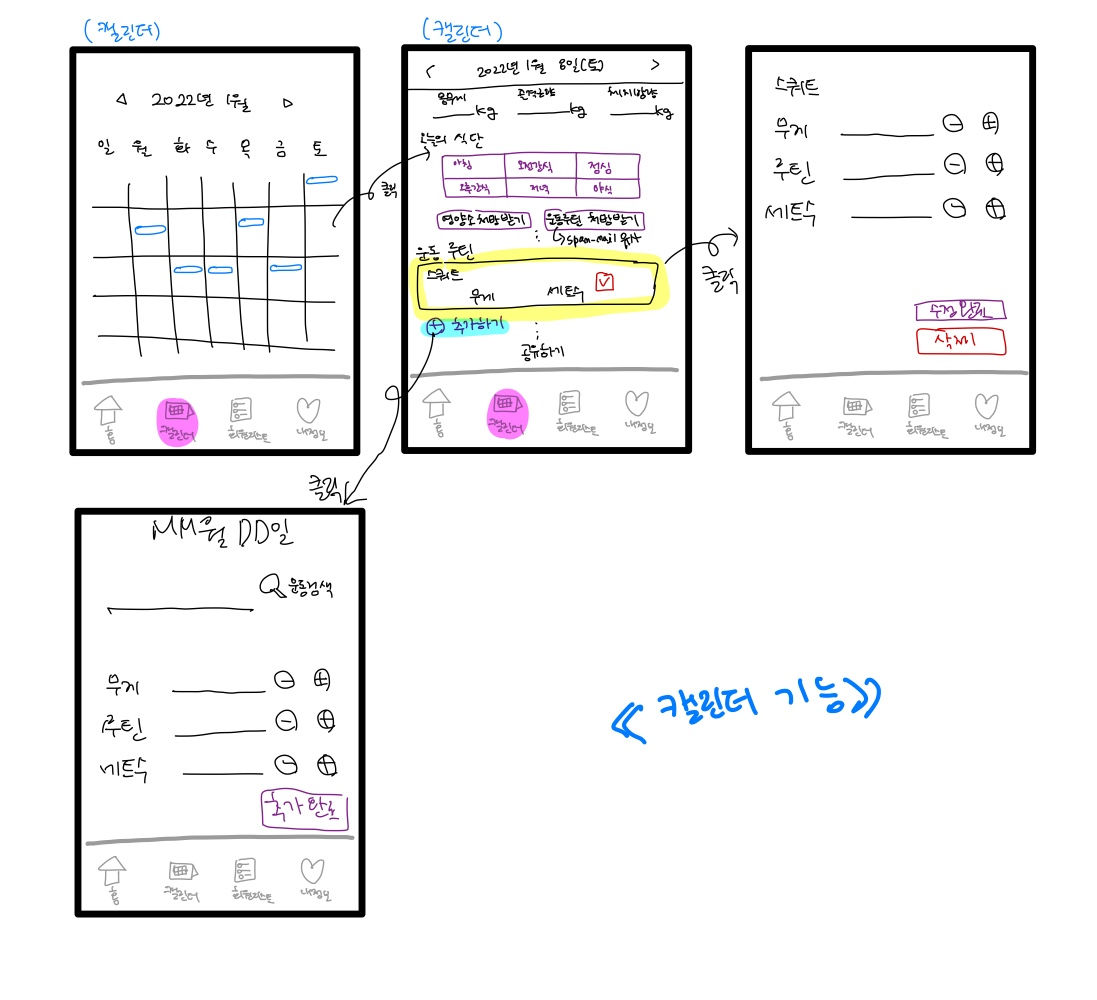 (캘린더)
2022년 1월
일 월 화 수 목 금 토
클릭
홈 캘린더 회원리스트 내정보
(캘린더)
2022년 1월 8일(토)
몸무게 골격근량 체지방량
kg kg kg
오늘의 식단
아침 오전간식 점심
오후간식 저녁 야식
영양소 처방받기 운동루틴 처방받기
운동 루틴
스쿼트
무게 세트수
추가하기
공유하기
클릭
홈 캘린더 회원리스트 내정보
스쿼트
무게
루틴
세트수
수정완료
삭제
홈 캘린더 회원리스트 내정보
클릭
MM월 DD일
운동검색
무게
루틴
세트수
추가 완료
홈 캘린더 회원리스트 내정보
<< 캘린더 기능>>